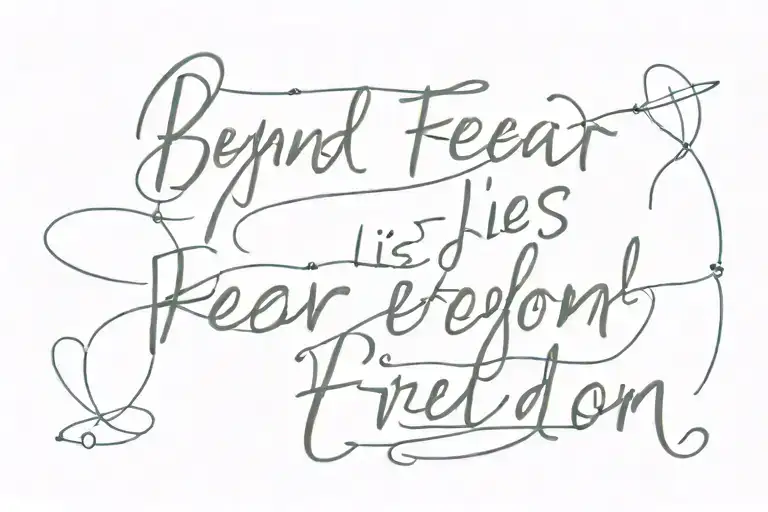 Beynd Feear
lis Lies
Fear
Freedom